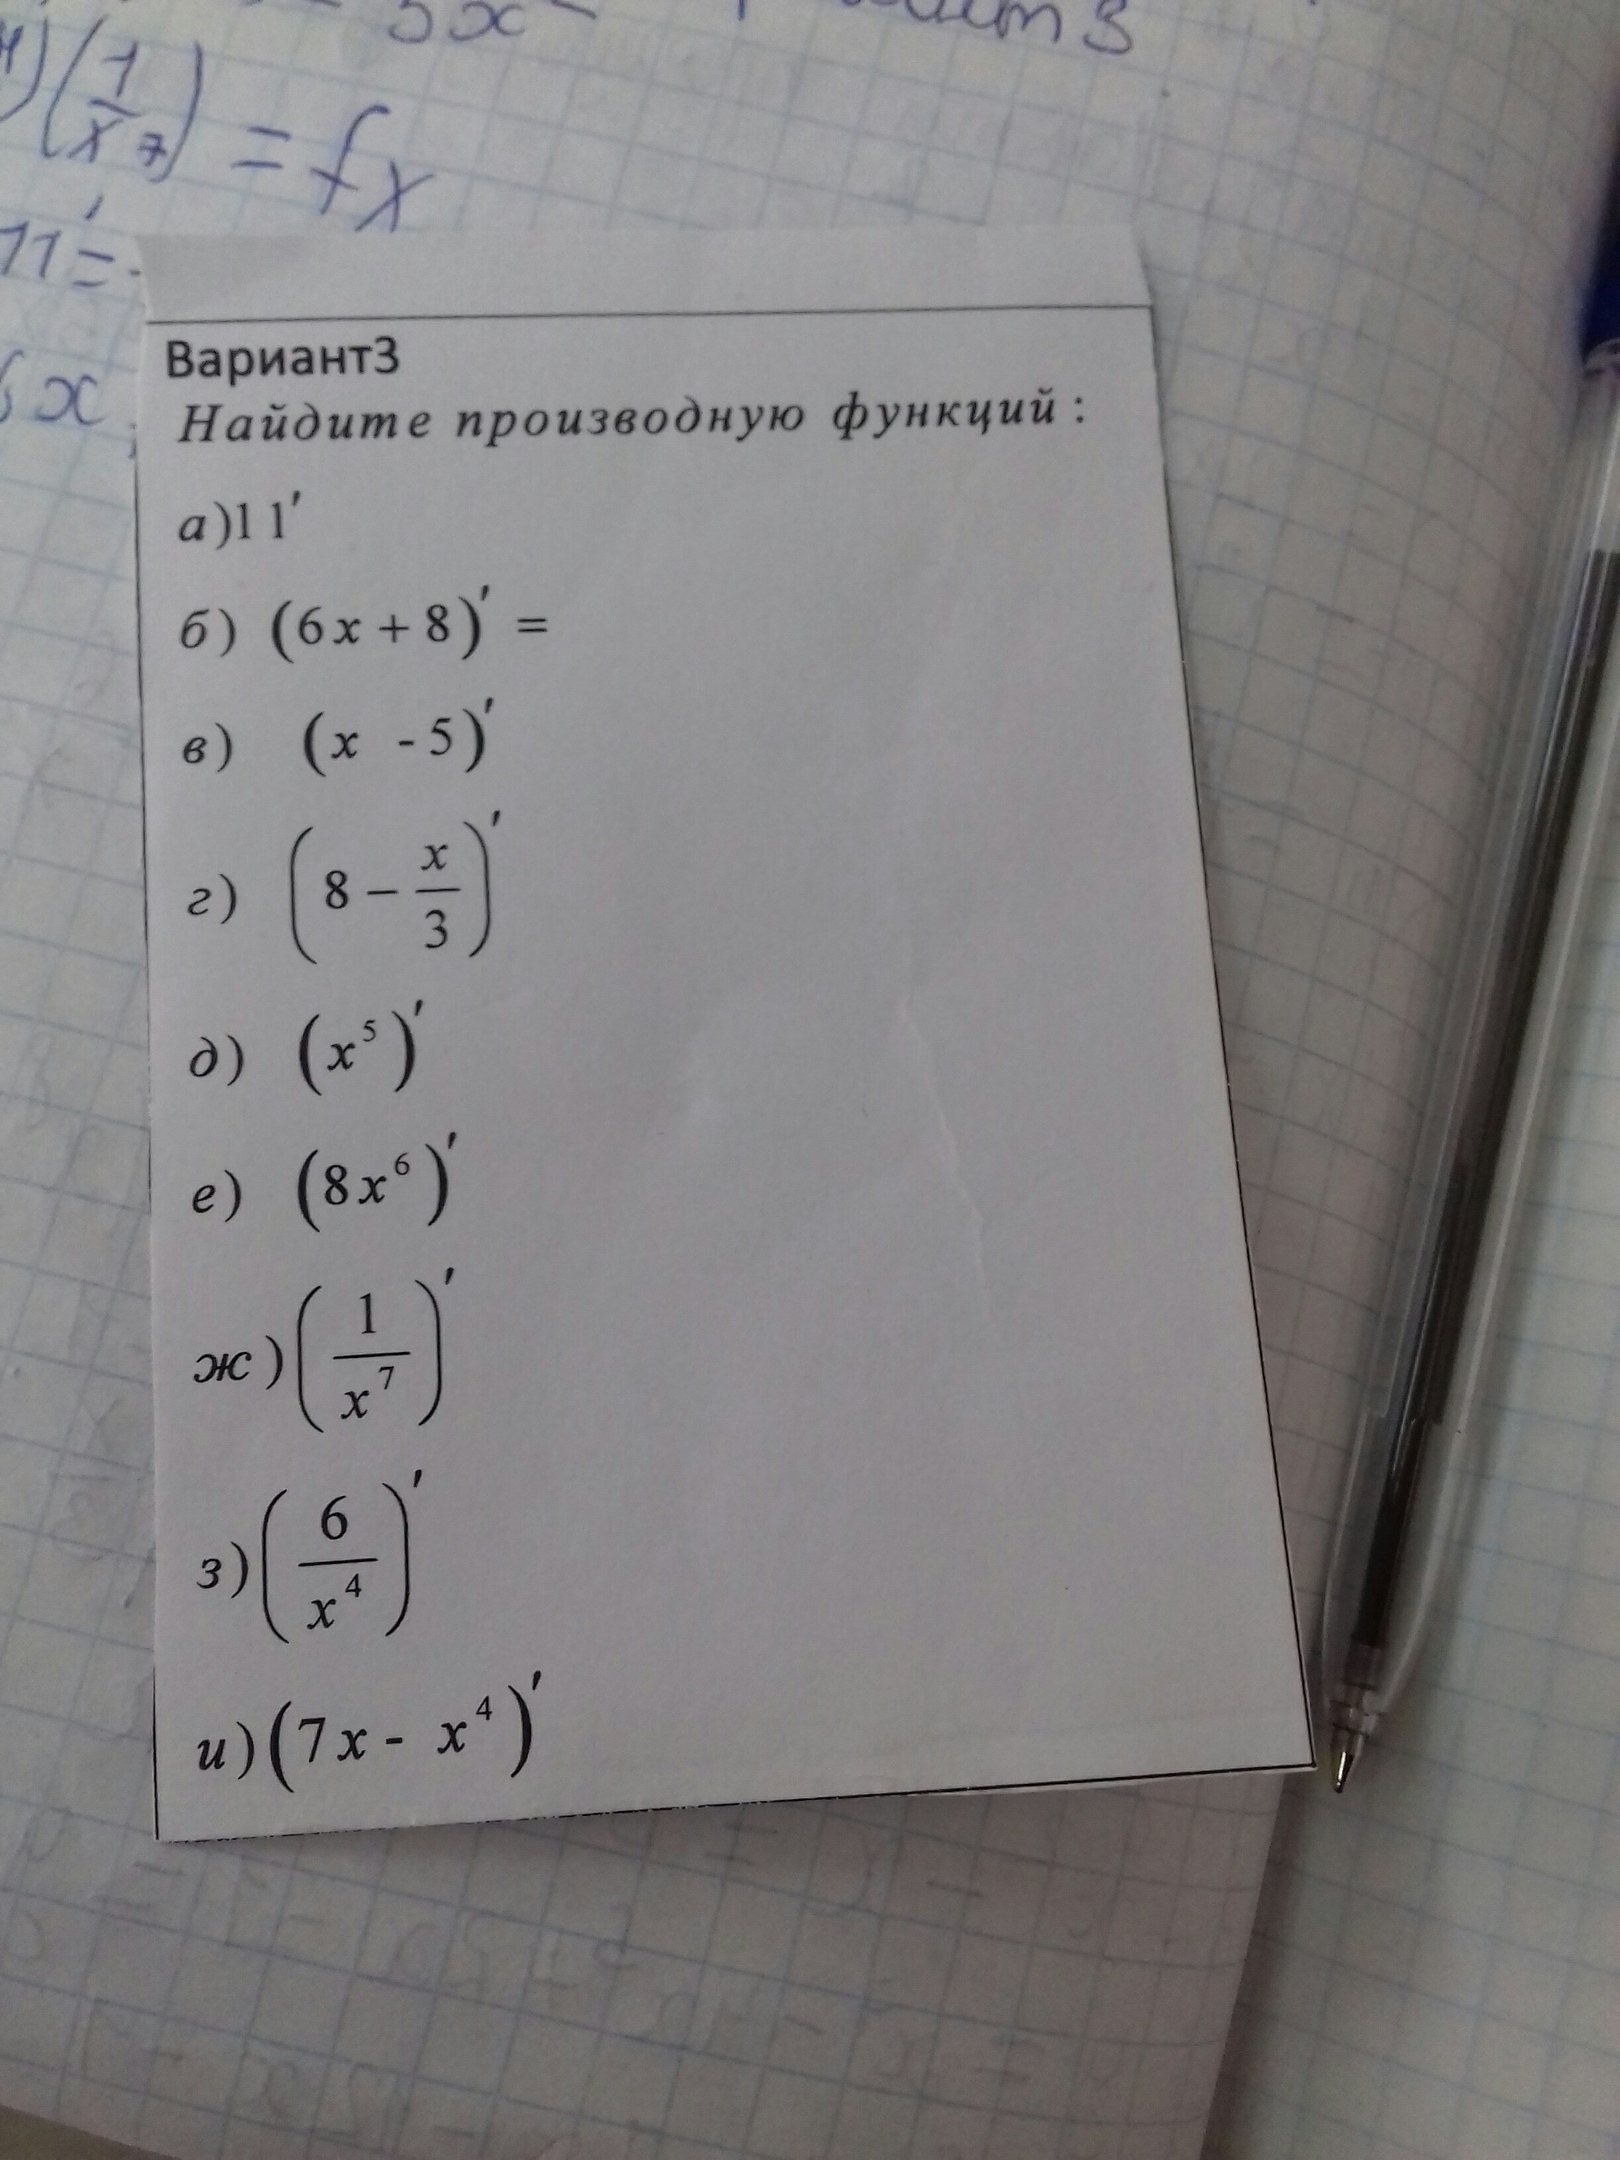 (1/x⁷) = fx
11' =
Вариант3
Найдите производную функций :
а)11'
б) (6x + 8)' =
в) (x - 5)'
г) (8 − x/3)'
д) (x⁵)'
е) (8x⁶)'
ж) (1/x⁷)'
з) (6/x⁴)'
и) (7x - x⁴)'